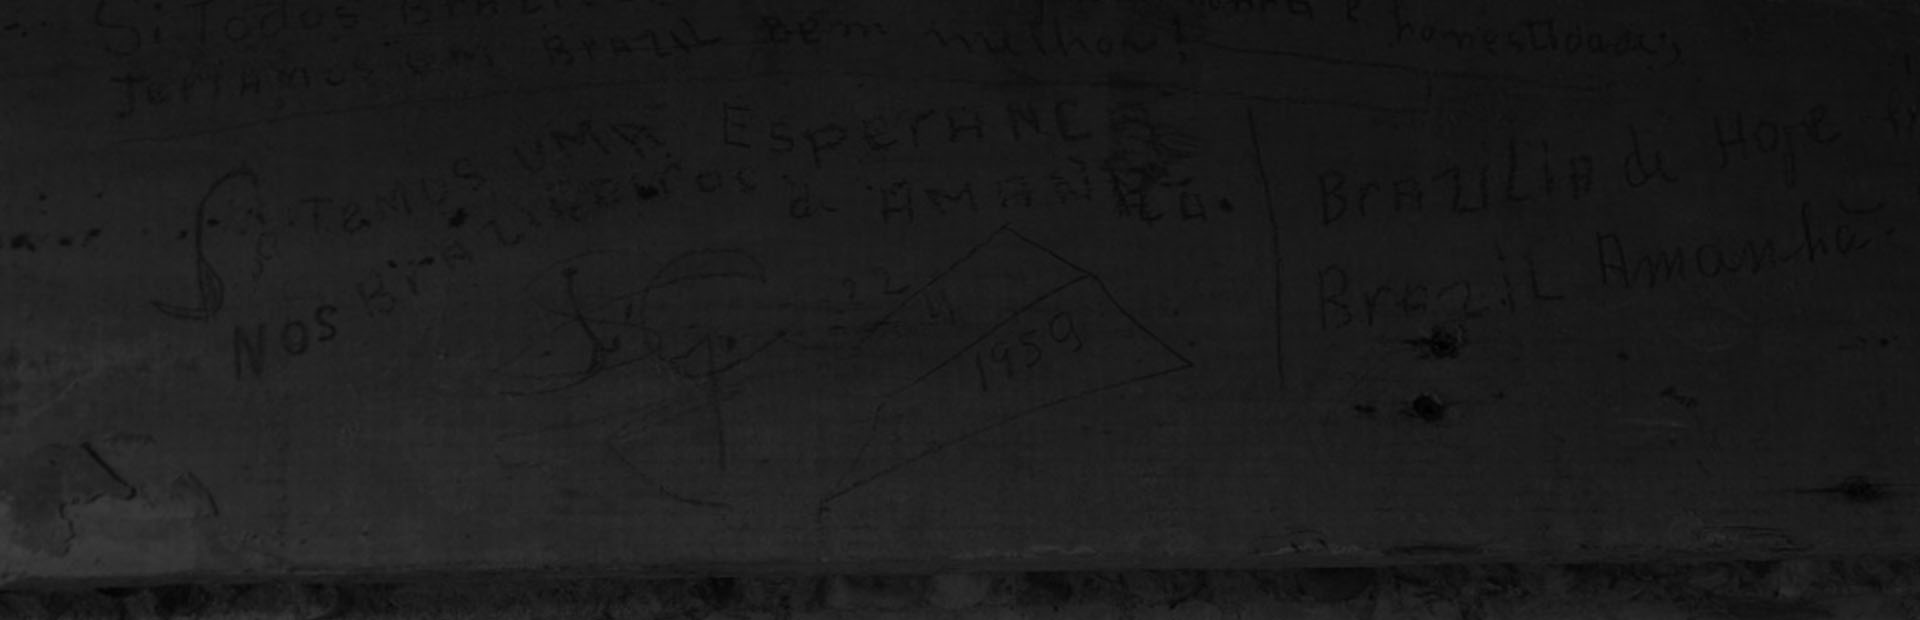 Si Todos
homestidade,
TERIAMUS um BrAZIL BEm milhor!
TeMUS UMA ESperANCA
NOS BrAZiLEiros de AMANHÃ.
22
4
1959
BrAZILiA de Hoje
BrAZiL Amanhã.